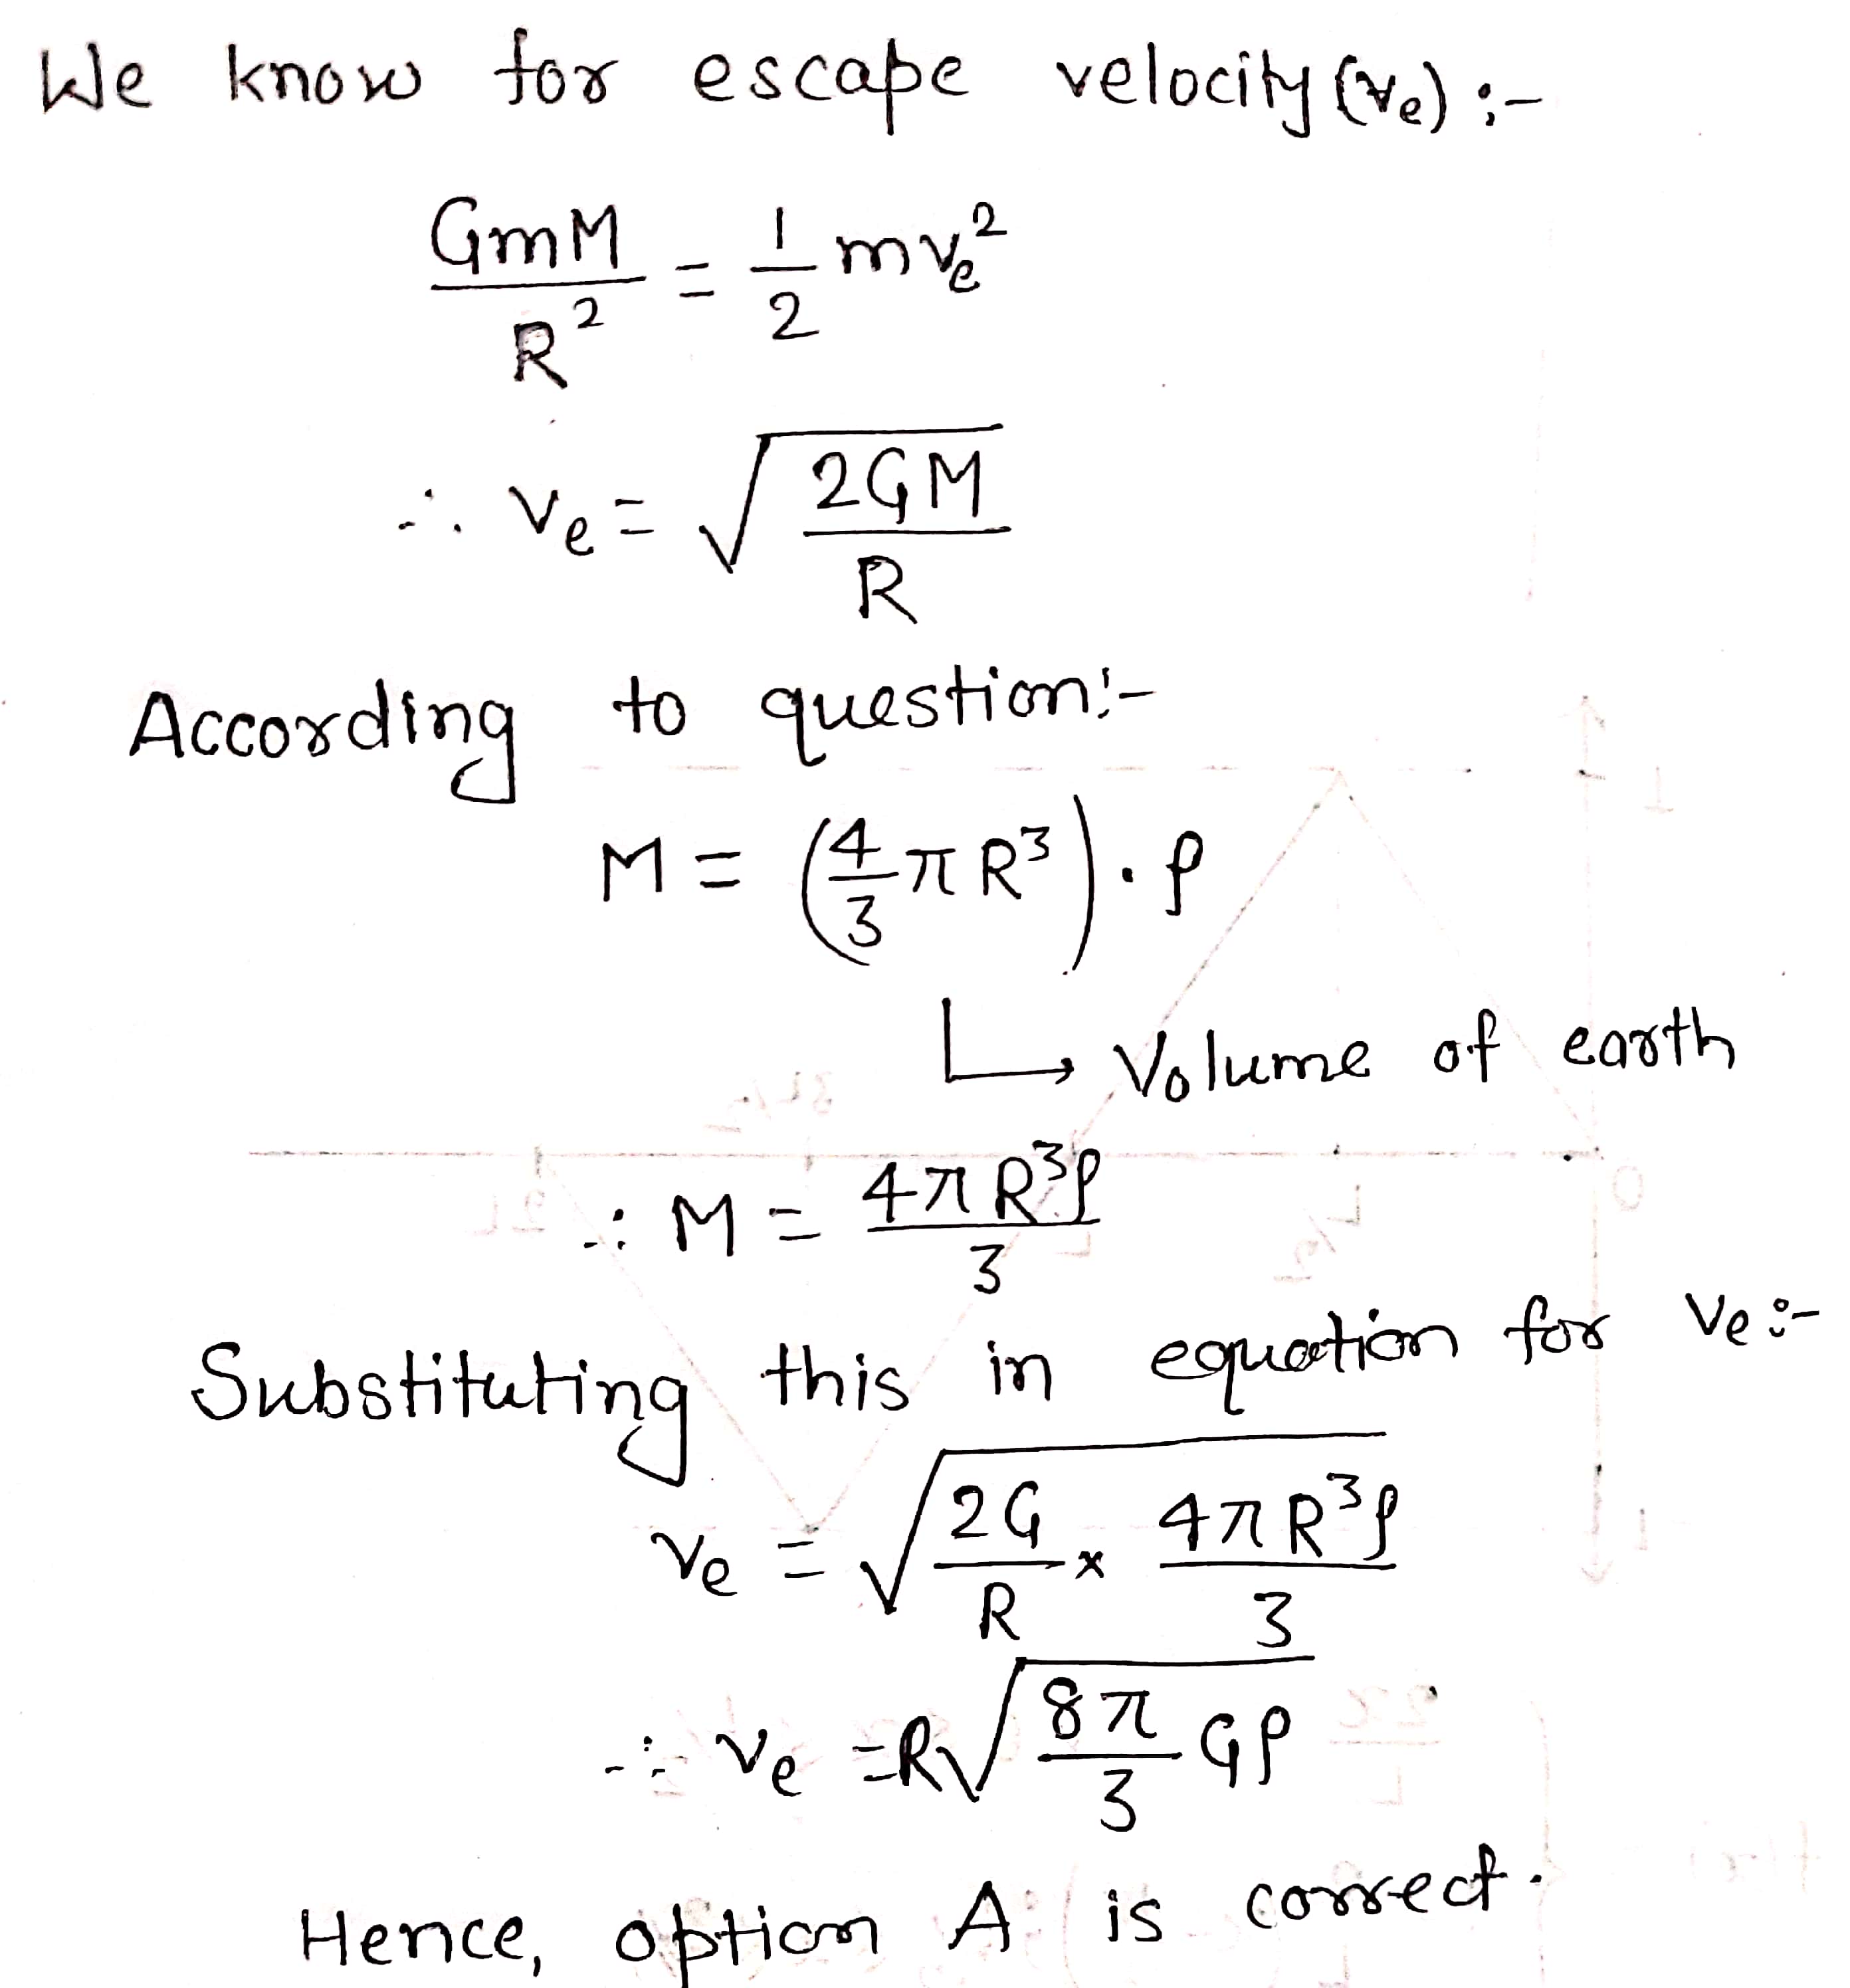 We know for escape velocity (vₑ) :-
GmM/R² = 1/2 mvₑ²
∴ vₑ = √(2GM/R)
According to question:-
M = (4/3 πR³) · ρ
↳ Volume of earth
∴ M = 4πR³ρ/3
Substituting this in equation for vₑ :-
vₑ = √(2G/R × 4πR³ρ/3)
∴ vₑ = R√(8π/3 Gρ)
Hence, option A is correct.